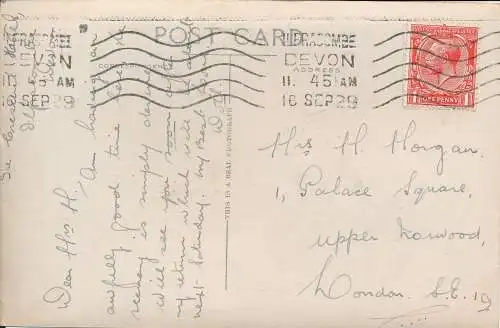 POST CARD
ILFRACOMBE
DEVON
ADDRESS
11. 45 AM
16 SEP 29
N
AM
SEP 29
POSTAGE
ONE PENNY
THIS IS A REAL PHOTOGRAPH
Hotel
Ilfracombe
Devon
Dear Mrs H.
Am having an
awfully good time here, the
scenery is simply
will see you soon after
my return which will be
next Saturday. My Best
Mrs H Horgan.
1, Palace Square,
upper Norwood,
London. S.E. 19